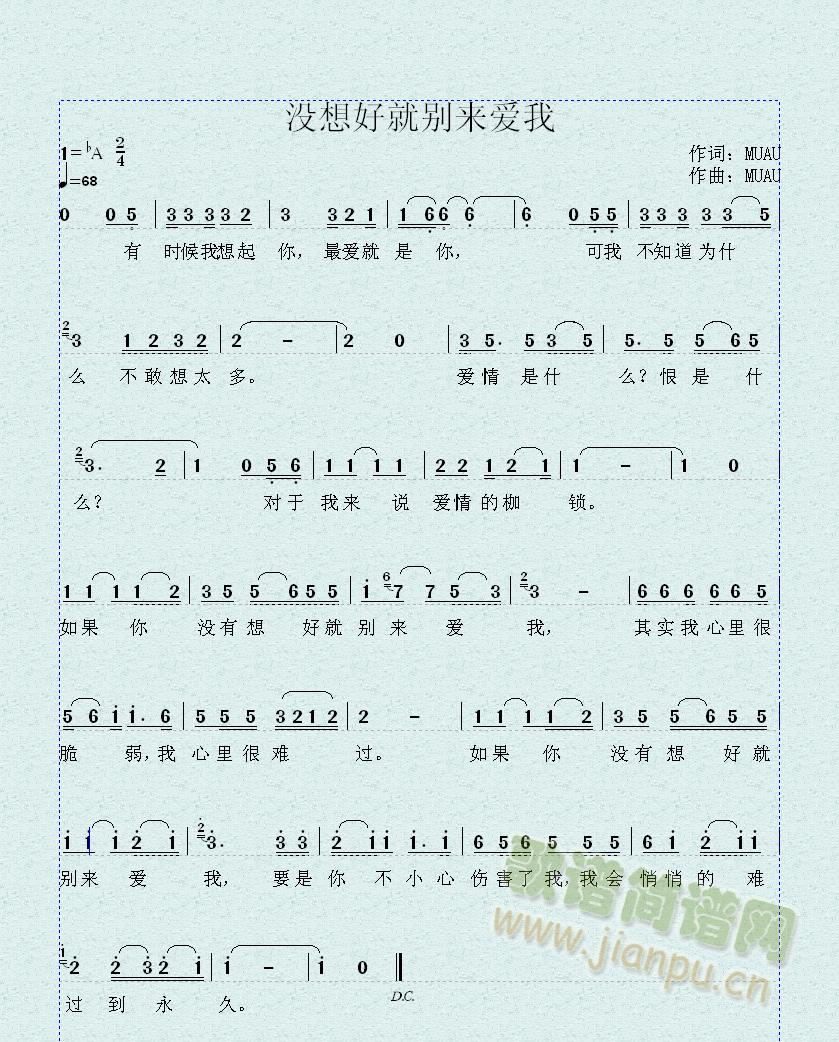 没想好就别来爱我
1=♭A 2/4
♩=68
作词：MUAU
作曲：MUAU
0 0 5 | 3 3 3 3 2 | 3 3 2 1 | 1 6 6 6 | 6 0 5 5 | 3 3 3 3 3 5
有 时候我想起 你，最爱就 是 你， 可我 不知道为什
2 3 1 2 3 2 | 2 - | 2 0 | 3 5. 5 3 5 | 5. 5 5 6 5
么 不敢想太 多。 爱情 是什 么？恨是 什
2 3. 2 | 1 0 5 6 | 1 1 1 1 | 2 2 1 2 1 | 1 - | 1 0
么？ 对于 我来 说 爱情的枷 锁。
1 1 1 1 2 | 3 5 5 6 5 5 | i 6 7 7 5 3 | 2 3 - | 6 6 6 6 6 5
如果 你 没有想 好就 别来 爱 我， 其实我心里很
5 6 i i. 6 | 5 5 5 3 2 1 2 | 2 - | 1 1 1 1 2 | 3 5 5 6 5 5
脆 弱，我 心里很难 过。 如果 你 没有想 好就
i i i 2 i | 2 3. 3 3 | 2 i i i. i | 6 5 6 5 5 5 | 6 i 2 i i
别来 爱 我， 要是你 不小心 伤害了我，我会 悄悄的 难
1 2 2 3 2 i | i - | i 0
过到 永 久。
D.C.
歌谱简谱网
www.jianpu.cn